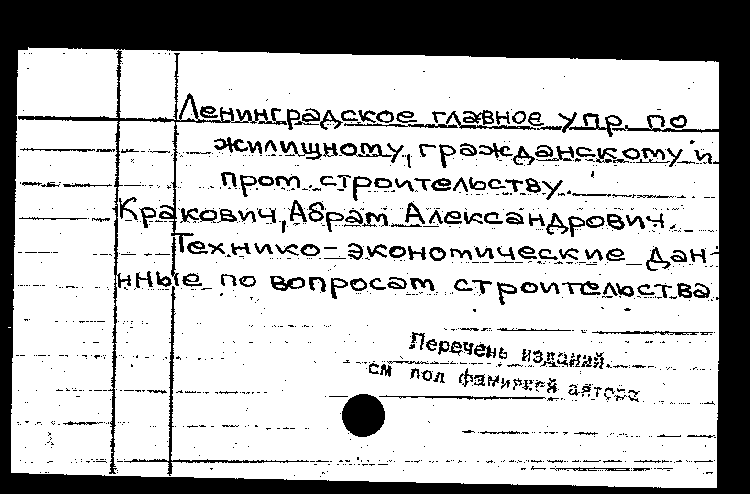 Ленинградское главное упр. по
жилищному, гражданскому и
пром. строительству.
Кракович, Абрам Александрович.
Технико-экономические дан-
нные по вопросам строительства
Перечень изданий
см под фамилией автора